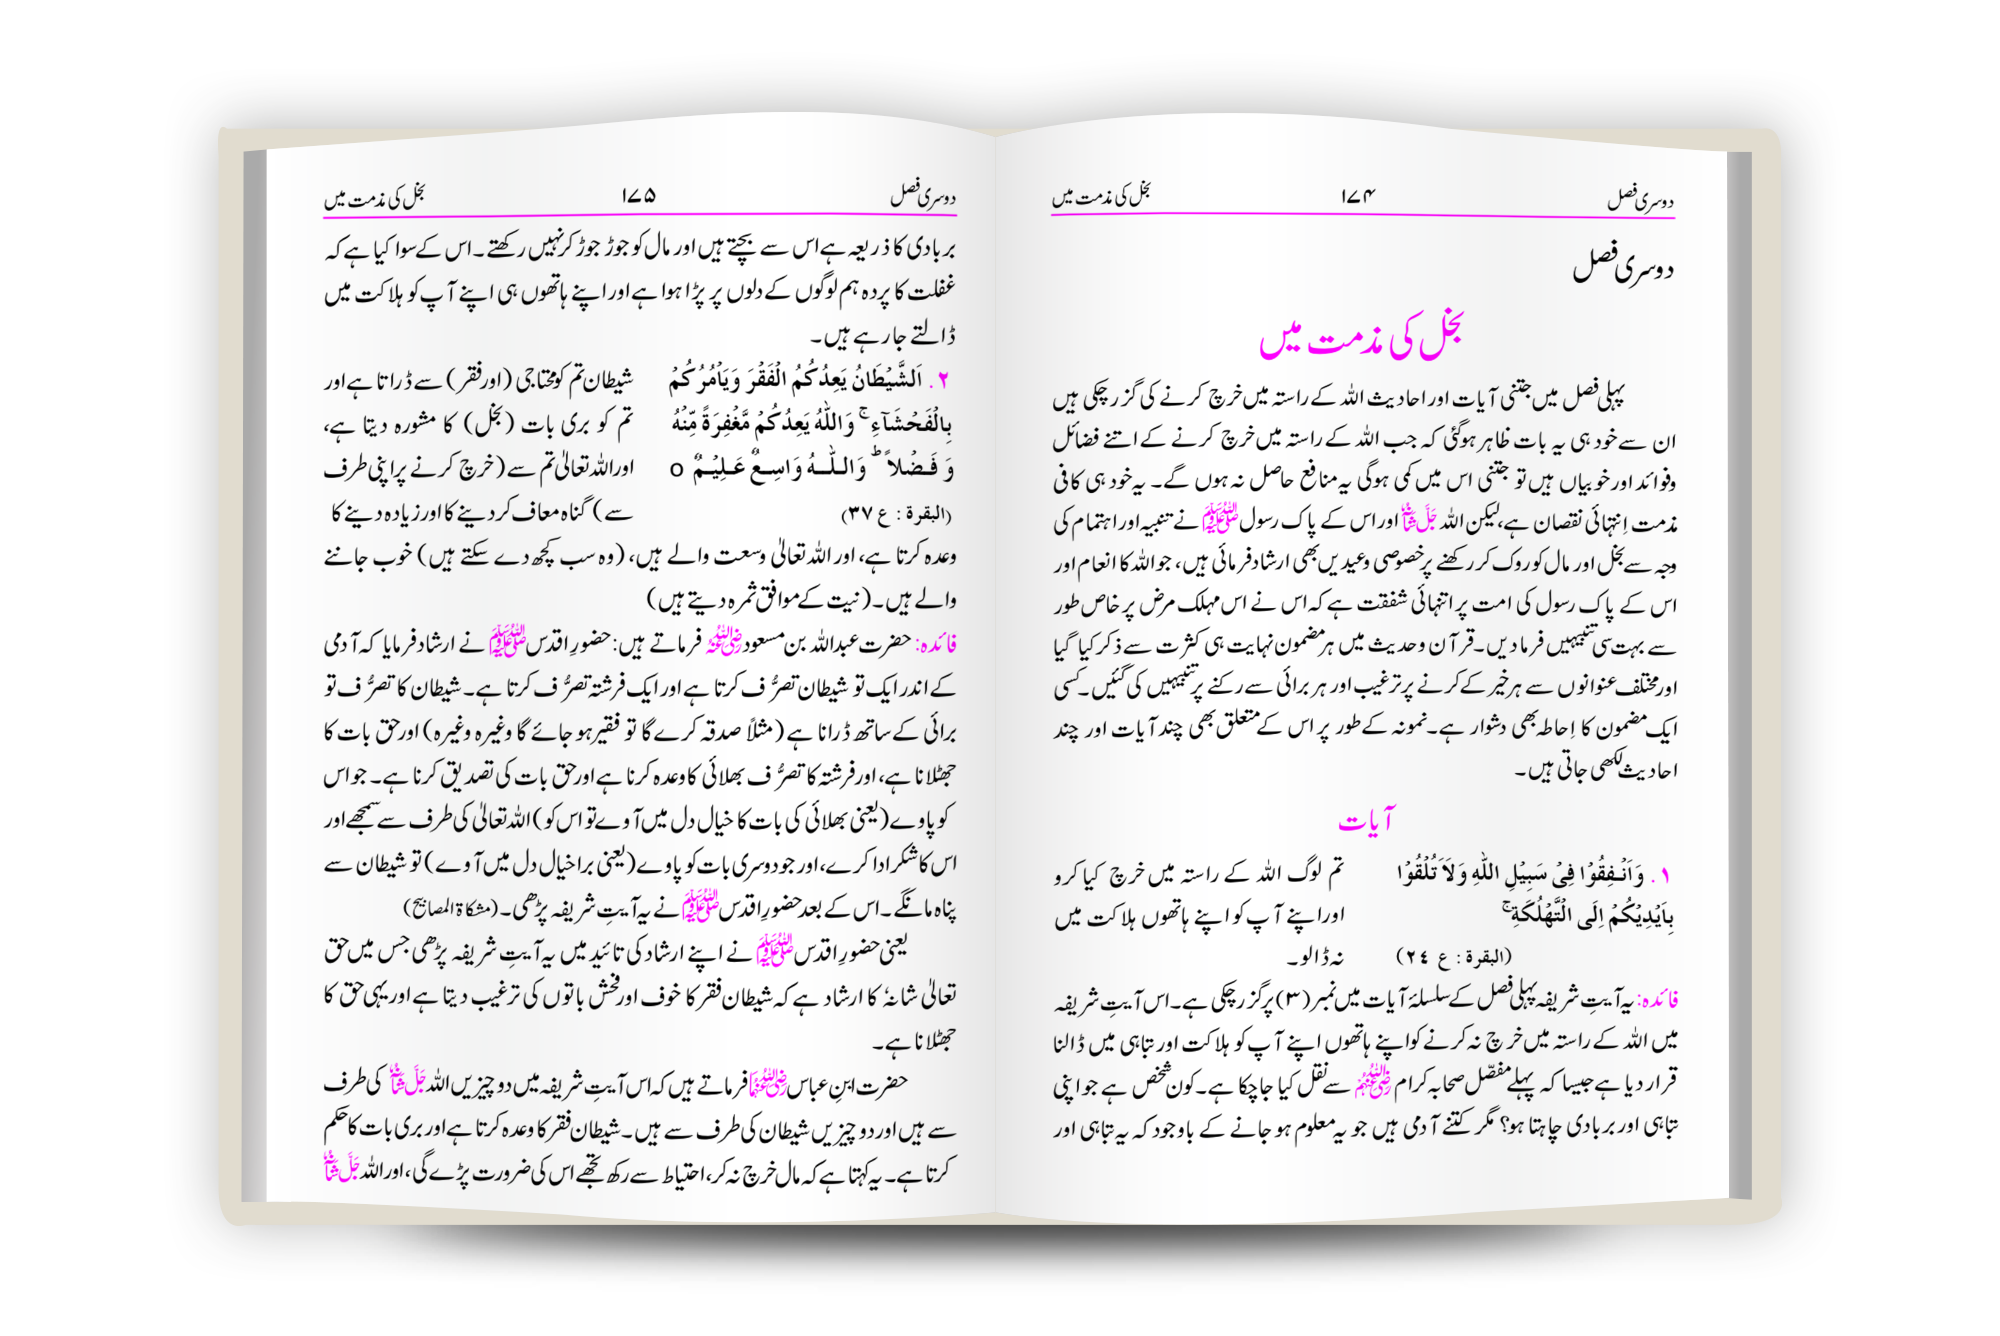 دوسری فصل ۱۷۴ بخل کی مذمت میں
دوسری فصل
بخل کی مذمت میں
پہلی فصل میں جتنی آیات اور احادیث اللہ کے راستہ میں خرچ کرنے کی گزر چکی ہیں
ان سے خود ہی یہ بات ظاہر ہوگئی کہ جب اللہ کے راستہ میں خرچ کرنے کے اتنے فضائل
وفوائد اور خوبیاں ہیں تو جتنی اس میں کمی ہوگی یہ منافع حاصل نہ ہوں گے۔ یہ خود ہی کافی
مذمت اِنتہائی نقصان ہے، لیکن اللہ جَلَّ شَانُہٗ اور اس کے پاک رسول ﷺ نے تنبیہ اور اہتمام کی
وجہ سے بخل اور مال کو روک کر رکھنے پر خصوصی وعیدیں بھی ارشاد فرمائی ہیں، جو اللہ کا انعام اور
اس کے پاک رسول کی امت پر انتہائی شفقت ہے کہ اس نے اس مہلک مرض پر خاص طور
سے بہت سی تنبیہیں فرمادیں۔ قرآن وحدیث میں ہر مضمون نہایت ہی کثرت سے ذکر کیا گیا
اور مختلف عنوانوں سے ہر خیر کے کرنے پر ترغیب اور ہر برائی سے رکنے پر تنبیہیں کی گئیں۔ کسی
ایک مضمون کا اِحاطہ بھی دشوار ہے۔ نمونہ کے طور پر اس کے متعلق بھی چند آیات اور چند
احادیث لکھی جاتی ہیں۔
آیات
۱. وَاَنْفِقُوْا فِیْ سَبِیْلِ اللّٰہِ وَلَا تُلْقُوْا تم لوگ اللہ کے راستہ میں خرچ کیا کرو
بِاَیْدِیْکُمْ اِلَی التَّھْلُکَۃِ ۚ اور اپنے آپ کو اپنے ہاتھوں ہلاکت میں
(البقرۃ : ع ٢٤) نہ ڈالو۔
فائدہ: یہ آیتِ شریفہ پہلی فصل کے سلسلۂ آیات میں نمبر (۳) پر گزر چکی ہے۔ اس آیتِ شریفہ
میں اللہ کے راستہ میں خرچ نہ کرنے کو اپنے ہاتھوں اپنے آپ کو ہلاکت اور تباہی میں ڈالنا
قرار دیا ہے جیسا کہ پہلے مفصّل صحابہ کرام رضی اللہ عنہم سے نقل کیا جاچکا ہے۔ کون شخص ہے جو اپنی
تباہی اور بربادی چاہتا ہو؟ مگر کتنے آدمی ہیں جو یہ معلوم ہو جانے کے باوجود کہ یہ تباہی اور
دوسری فصل ۱۷۵ بخل کی مذمت میں
بربادی کا ذریعہ ہے اس سے بچتے ہیں اور مال کو جوڑ جوڑ کر نہیں رکھتے۔ اس کے سوا کیا ہے کہ
غفلت کا پردہ ہم لوگوں کے دلوں پر پڑا ہوا ہے اور اپنے ہاتھوں ہی اپنے آپ کو ہلاکت میں
ڈالتے جارہے ہیں۔
۲. اَلشَّیْطَانُ یَعِدُکُمُ الْفَقْرَ وَیَاْمُرُکُمْ شیطان تم کو محتاجی (اور فقر) سے ڈراتا ہے اور
بِالْفَحْشَآءِ ۚ وَاللّٰہُ یَعِدُکُمْ مَّغْفِرَۃً مِّنْہُ تم کو بری بات (بخل) کا مشورہ دیتا ہے،
وَفَضْلاً ؕ وَاللّٰہُ وَاسِعٌ عَلِیْمٌ o اور اللہ تعالیٰ تم سے (خرچ کرنے پر اپنی طرف
(البقرۃ : ع ٣٧) سے) گناہ معاف کردینے کا اور زیادہ دینے کا
وعدہ کرتا ہے، اور اللہ تعالیٰ وسعت والے ہیں، (وہ سب کچھ دے سکتے ہیں) خوب جاننے
والے ہیں۔ (نیت کے موافق ثمرہ دیتے ہیں)
فائدہ: حضرت عبداللہ بن مسعود رضی اللہ عنہ فرماتے ہیں: حضورِ اقدس ﷺ نے ارشاد فرمایا کہ آدمی
کے اندر ایک تو شیطان تصرُّف کرتا ہے اور ایک فرشتہ تصرُّف کرتا ہے۔ شیطان کا تصرُّف تو
برائی کے ساتھ ڈرانا ہے (مثلاً صدقہ کرے گا تو فقیر ہو جائے گا وغیرہ وغیرہ) اور حق بات کا
جھٹلانا ہے، اور فرشتہ کا تصرُّف بھلائی کا وعدہ کرنا ہے اور حق بات کی تصدیق کرنا ہے۔ جو اس
کو پاوے (یعنی بھلائی کی بات کا خیال دل میں آوے تو اس کو) اللہ تعالیٰ کی طرف سے سمجھے اور
اس کا شکر ادا کرے، اور جو دوسری بات کو پاوے (یعنی برا خیال دل میں آوے) تو شیطان سے
پناہ مانگے۔ اس کے بعد حضورِ اقدس ﷺ نے یہ آیتِ شریفہ پڑھی۔ (مشکاۃ المصابیح)
یعنی حضورِ اقدس ﷺ نے اپنے ارشاد کی تائید میں یہ آیتِ شریفہ پڑھی جس میں حق
تعالیٰ شانہٗ کا ارشاد ہے کہ شیطان فقر کا خوف اور فحش باتوں کی ترغیب دیتا ہے اور یہی حق کا
جھٹلانا ہے۔
حضرت ابنِ عباس رضی اللہ عنہما فرماتے ہیں کہ اس آیتِ شریفہ میں دو چیزیں اللہ جَلَّ شَانُہٗ کی طرف
سے ہیں اور دو چیزیں شیطان کی طرف سے ہیں۔ شیطان فقر کا وعدہ کرتا ہے اور بری بات کا حکم
کرتا ہے۔ یہ کہتا ہے کہ مال خرچ نہ کر، احتیاط سے رکھ تجھے اس کی ضرورت پڑے گی، اور اللہ جَلَّ شَانُہٗ